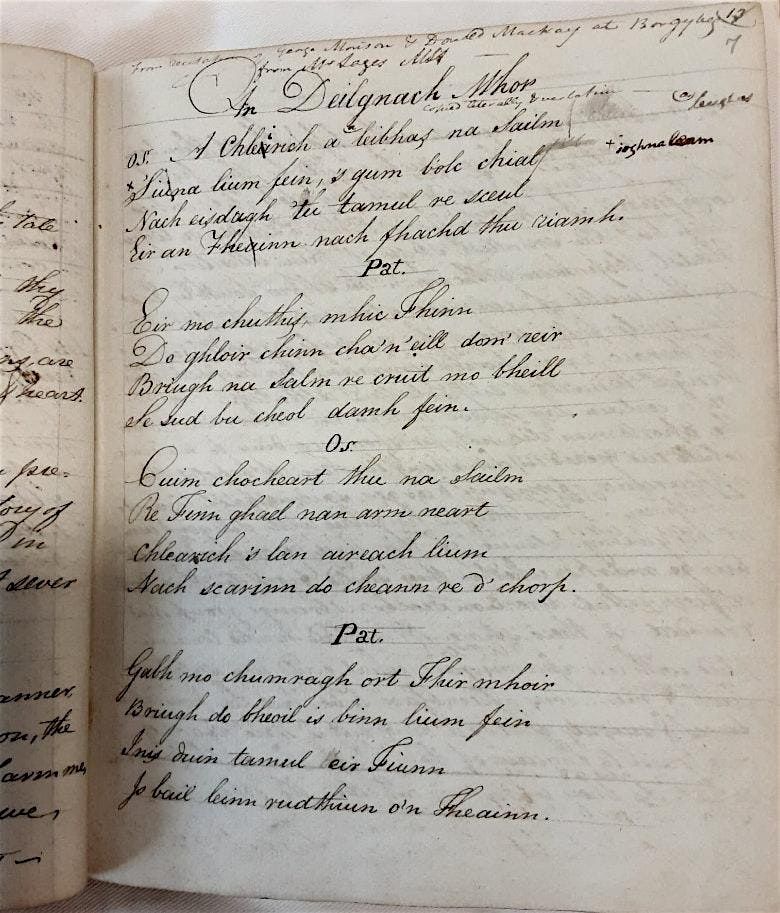 13
7
George Morison & Donald Mackay at Borgybeg
from Mr Sages MSS
In Deilgnach Mhor
Copied literally
leughas
Os. A Chleirich a leibhas na Sailm
+ Siuna lium fein, s gum bolc chial
+ ioghna leam
Nach eisdagh tu tamul re sceul
Eir an Fheainn nach fhachd thu riamh.
Pat.
Eir mo chuthis, mhic Fhinn
Do ghloir chinn cha'n'eill dom' reir
Briugh na Salm re cruit mo bheill
Se sud bu cheol damh fein.
Os.
Cuim chocheart thu na Sailm
Re Finn ghael nan arm neart
Chlearich 's lan aireach lium
Nach scarinn do cheann re d' chorp.
Pat.
Gabh mo chumragh ort Fhir mhoir
Briugh do bheoil is binn lium fein
Inis duin tamul eir Fiunn
Is bail leinn rudthiun o'n Fheainn.
Tale
thy
the
are
heart.
pre-
tory of
in
sever
anner,
on, the